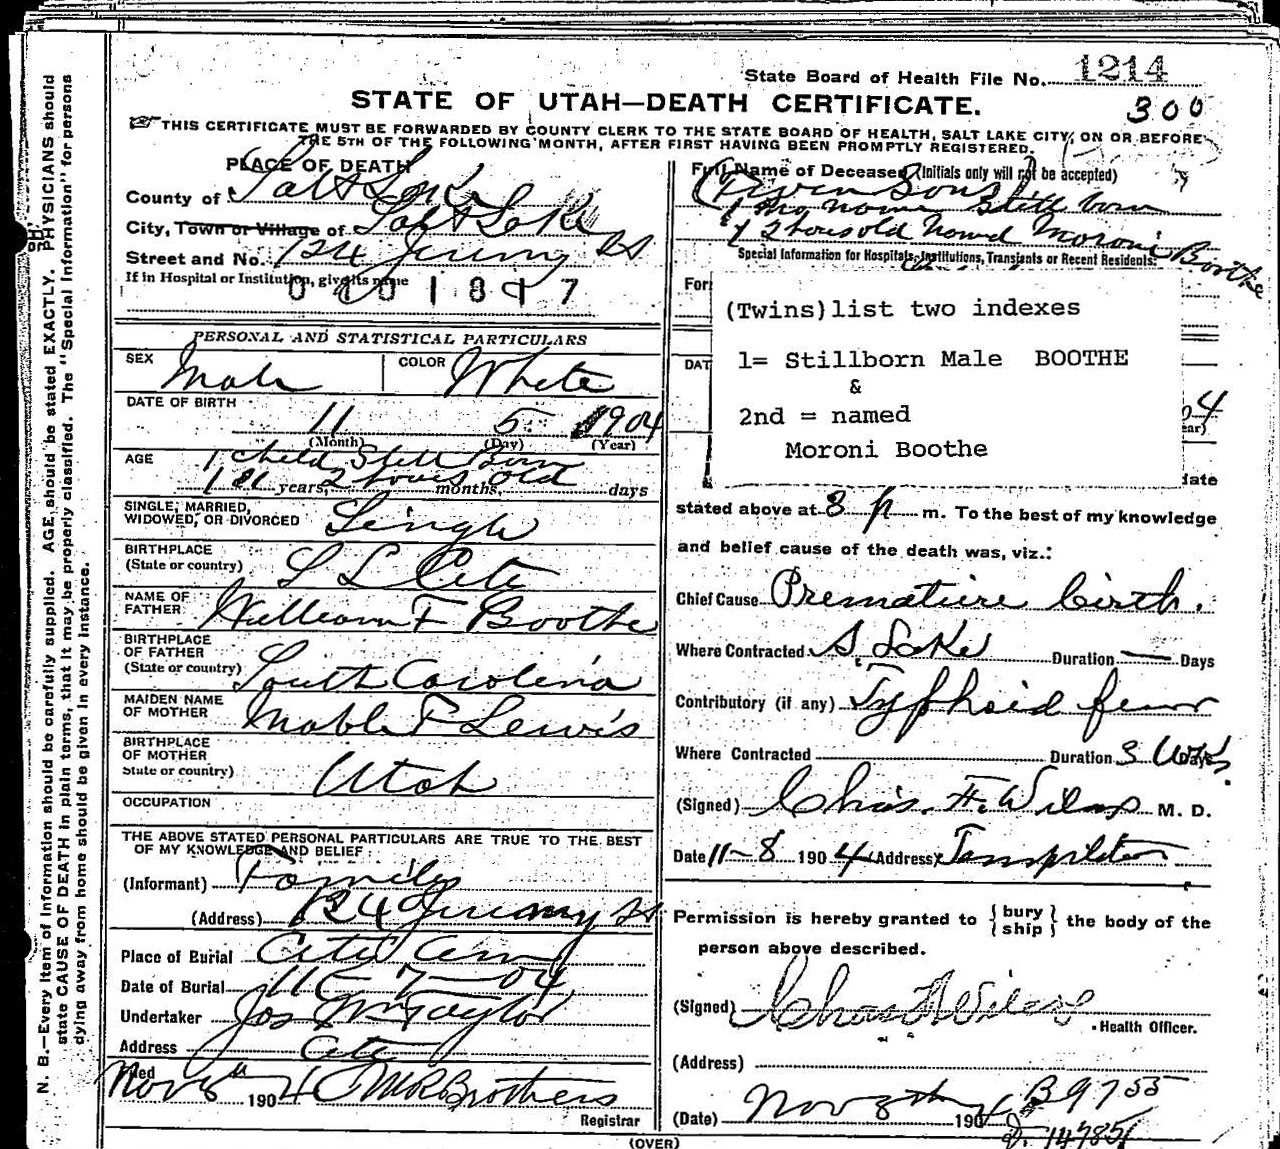 State Board of Health File No. 1214
STATE OF UTAH—DEATH CERTIFICATE.
300
THIS CERTIFICATE MUST BE FORWARDED BY COUNTY CLERK TO THE STATE BOARD OF HEALTH, SALT LAKE CITY, ON OR BEFORE
THE 5TH OF THE FOLLOWING MONTH, AFTER FIRST HAVING BEEN PROMPTLY REGISTERED.
PLACE OF DEATH
County of Salt Lake
City, Town or Village of Salt Lake
Street and No. 124 Jeremy St
If in Hospital or Institution, give its name
PERSONAL AND STATISTICAL PARTICULARS
SEX Male COLOR White
DATE OF BIRTH 11 5 1904
(Month) (Day) (Year)
AGE 1 Child Still Born
1 years, 2 hours old months, days
SINGLE, MARRIED,
WIDOWED, OR DIVORCED Single
BIRTHPLACE
(State or country) S L City
NAME OF
FATHER William F Boothe
BIRTHPLACE
OF FATHER
(State or country) South Carolina
MAIDEN NAME
OF MOTHER Mable F Lewis
BIRTHPLACE
OF MOTHER
State or country) Utah
OCCUPATION
THE ABOVE STATED PERSONAL PARTICULARS ARE TRUE TO THE BEST
OF MY KNOWLEDGE AND BELIEF
(Informant) Family
(Address) 124 Jeremy St
Place of Burial City Cem
Date of Burial 11-7-04
Undertaker Jos Wm Taylor
Address City
Filed Nov 8" 1904 C M R Brothers
Registrar
Full Name of Deceased (Initials only will not be accepted)
(Twin Sons)
1 no name Still born
1 2 hours old Named Moroni Boothe
Special Information for Hospitals, Institutions, Transients or Recent Residents:
(Twins) list two indexes
1= Stillborn Male BOOTHE
&
2nd = named
Moroni Boothe
For
DAT
04
ear)
date
stated above at 8 p m. To the best of my knowledge
and belief cause of the death was, viz.:
Chief Cause Premature birth.
Where Contracted S. Lake Duration — Days
Contributory (if any) Typhoid fever
Where Contracted Duration 3 Wks
(Signed) Chas. F. Wilcox M. D.
Date 11-8 1904 (Address) Templeton
Permission is hereby granted to {bury ship} the body of the
person above described.
(Signed) Chas F Wilcox
Health Officer.
(Address)
(Date) Nov 8th 1904 B 9755
D. 14785
(OVER)
N. B.—Every item of information should be carefully supplied. AGE should be stated EXACTLY. PHYSICIANS should
state CAUSE OF DEATH in plain terms, that it may be properly classified. The "Special Information" for persons
dying away from home should be given in every instance.